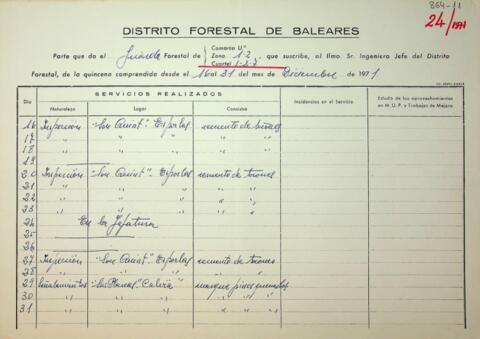 864-11
24/1971
DISTRITO FORESTAL DE BALEARES
Comarca U.ª
Parte que da el Guarda Forestal de Zona 1-2 que suscribe, al Ilmo. Sr. Ingeniero Jefe del Distrito
Cuartel 1-2-3
Forestal, de la quincena comprendida desde el 16 al 31 del mes de Diciembre de 1971
SERVICIOS REALIZADOS
Día Naturaleza Lugar Cometido Incidencias en el Servicio Estado de los aprovechamientos en M. U. P. y Trabajos de Mejora
16 Inspección "Son Quint". Esporlas remonte de
17 " " "
18 " " "
19
20 Inspección "Son Quint". Esporlas remonte de
21 " " "
22 " " "
23 " " "
24 En la Jefatura
25
26
27 Inspección "Son Quint". Esporlas remonte de
28 " " "
29 Señalamientos Calviá marque pinos quemados
30 " " "
31 " " "